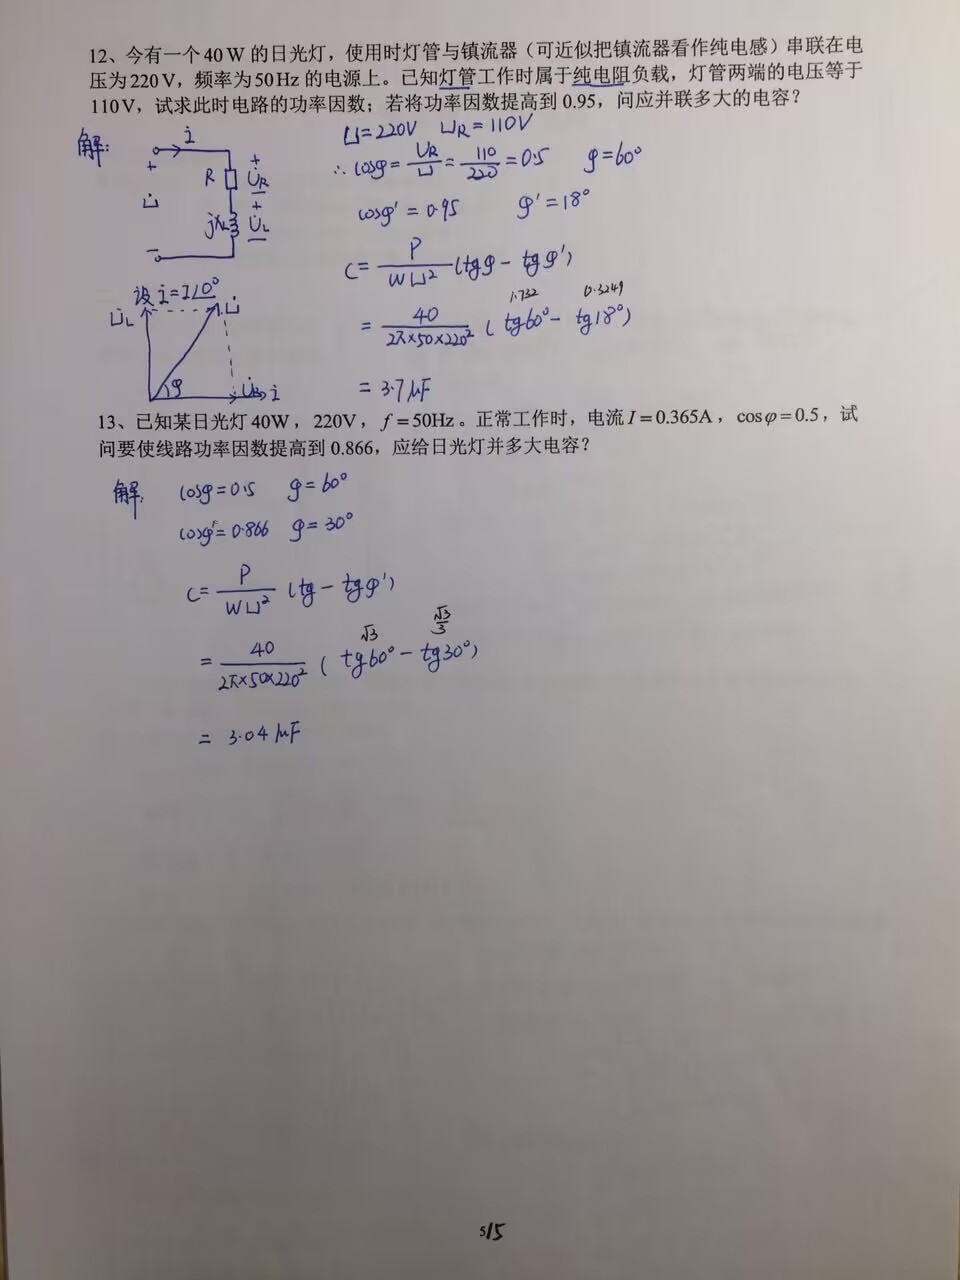 12、今有一个 40 W 的日光灯，使用时灯管与镇流器（可近似把镇流器看作纯电感）串联在电
压为 220 V，频率为 50 Hz 的电源上。已知灯管工作时属于纯电阻负载，灯管两端的电压等于
110 V，试求此时电路的功率因数；若将功率因数提高到 0.95，问应并联多大的电容？
解：
i
+
U̇
−
R
jXL
+
U̇R
+
U̇L
−
设 İ=I∠0°
U̇L
U̇
φ
U̇R İ
U=220V UR=110V
∴ cosφ=UR/U=110/220=0.5 φ=60°
cosφ'=0.95 φ'=18°
C=P/WU²(tgφ−tgφ')
1.732 0.3249
=40/2π×50×220²(tg60°−tg18°)
=3.7μF
13、已知某日光灯 40W，220V，f=50Hz。正常工作时，电流 I=0.365A，cosφ=0.5，试
问要使线路功率因数提高到 0.866，应给日光灯并多大电容？
解：
cosφ=0.5 φ=60°
cosφ'=0.866 φ=30°
C=P/WU²(tg−tgφ')
√3 √3/3
=40/2π×50×220²(tg60°−tg30°)
=3.04μF
5/15